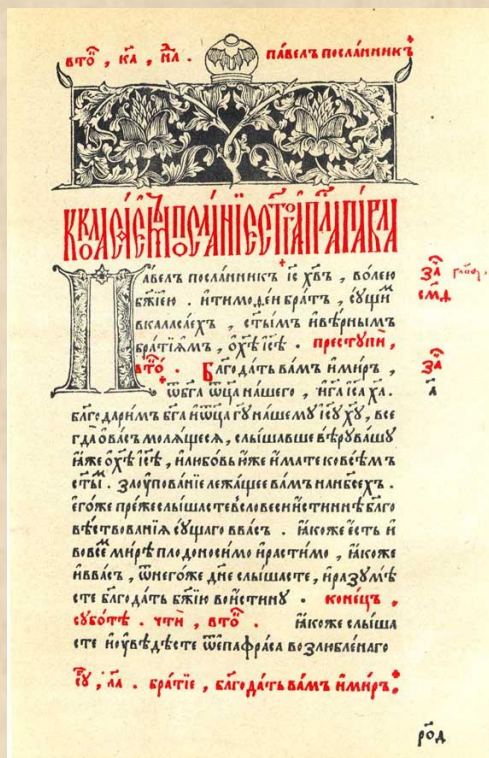 вто҃ , к҃а , н҃л . па́вел посла́нникъ
ККОЛАСАЕМЪ ПОСЛАНІЕ СТГО АПЛА ПАВЛА
Па́велъ посла́нникъ і҃с х҃въ , во́лею
б҃жїею . и҆тимоѳе́и бра́тъ , сꙋ́щи
вкаласа́ехъ , ст҃ы́мъ и҆вѣ́рнымъ
бра́тїямъ , ѡ҆х҃ѣ і҆с҃ѣ . престꙋпѝ ,
вто҃ . Бл҃года́ть ва́мъ и҆ми́ръ ,
ѿб҃га ѿц҃а на́шего , и҆г҃а і҆с҃а х҃а .
бл҃годари́мъ б҃га и҆ѿц҃а г҃ꙋ на́шемꙋ і҆с҃ꙋ х҃ꙋ , все
гда̀ ѡ҆ва́съ моля́щеся , слы́шавше вѣ́рꙋ ва́шꙋ
ꙗ҆́же ѡ҆х҃ѣ і҆с҃ѣ , и҆любо́вь ю҆́же и҆́мате ковсѣ́мъ
ст҃ы́ . заꙋ҆пова́нїе лежа́щее ва́мъ нанб҃сехъ .
є҆го́же пре́же слы́шасте въсловесѝ и҆́стинне бл҃го
вѣ́ствованїя сꙋ́щаго вва́съ . ꙗ҆́коже є҆́сть и҆
вовсе́ ми́рѣ плодоно́симо и҆расти́мо , ꙗ҆́коже
и҆вва́съ , ѿнего́же дн҃е слы́шасте , и҆разꙋмѣ́
сте бл҃года́ть б҃жїю вои́стинꙋ . коне́цъ ,
сꙋбо́тѣ . чтѝ , вто҃ . ꙗ҆́коже слы́ша
сте и҆ꙋ҆вѣ́дѣсте ѿє҆пафра́са возлю́бленаго
л҃а . бра́тїе , бл҃года́ть ва́мъ и҆ми́ръ .
за҃
см҃д
за҃
ро҃д